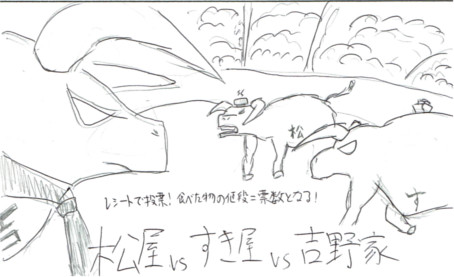 松
す
レシートで投票!食べた物の値段=票数となる!
松屋 vs すき屋 vs 吉野家